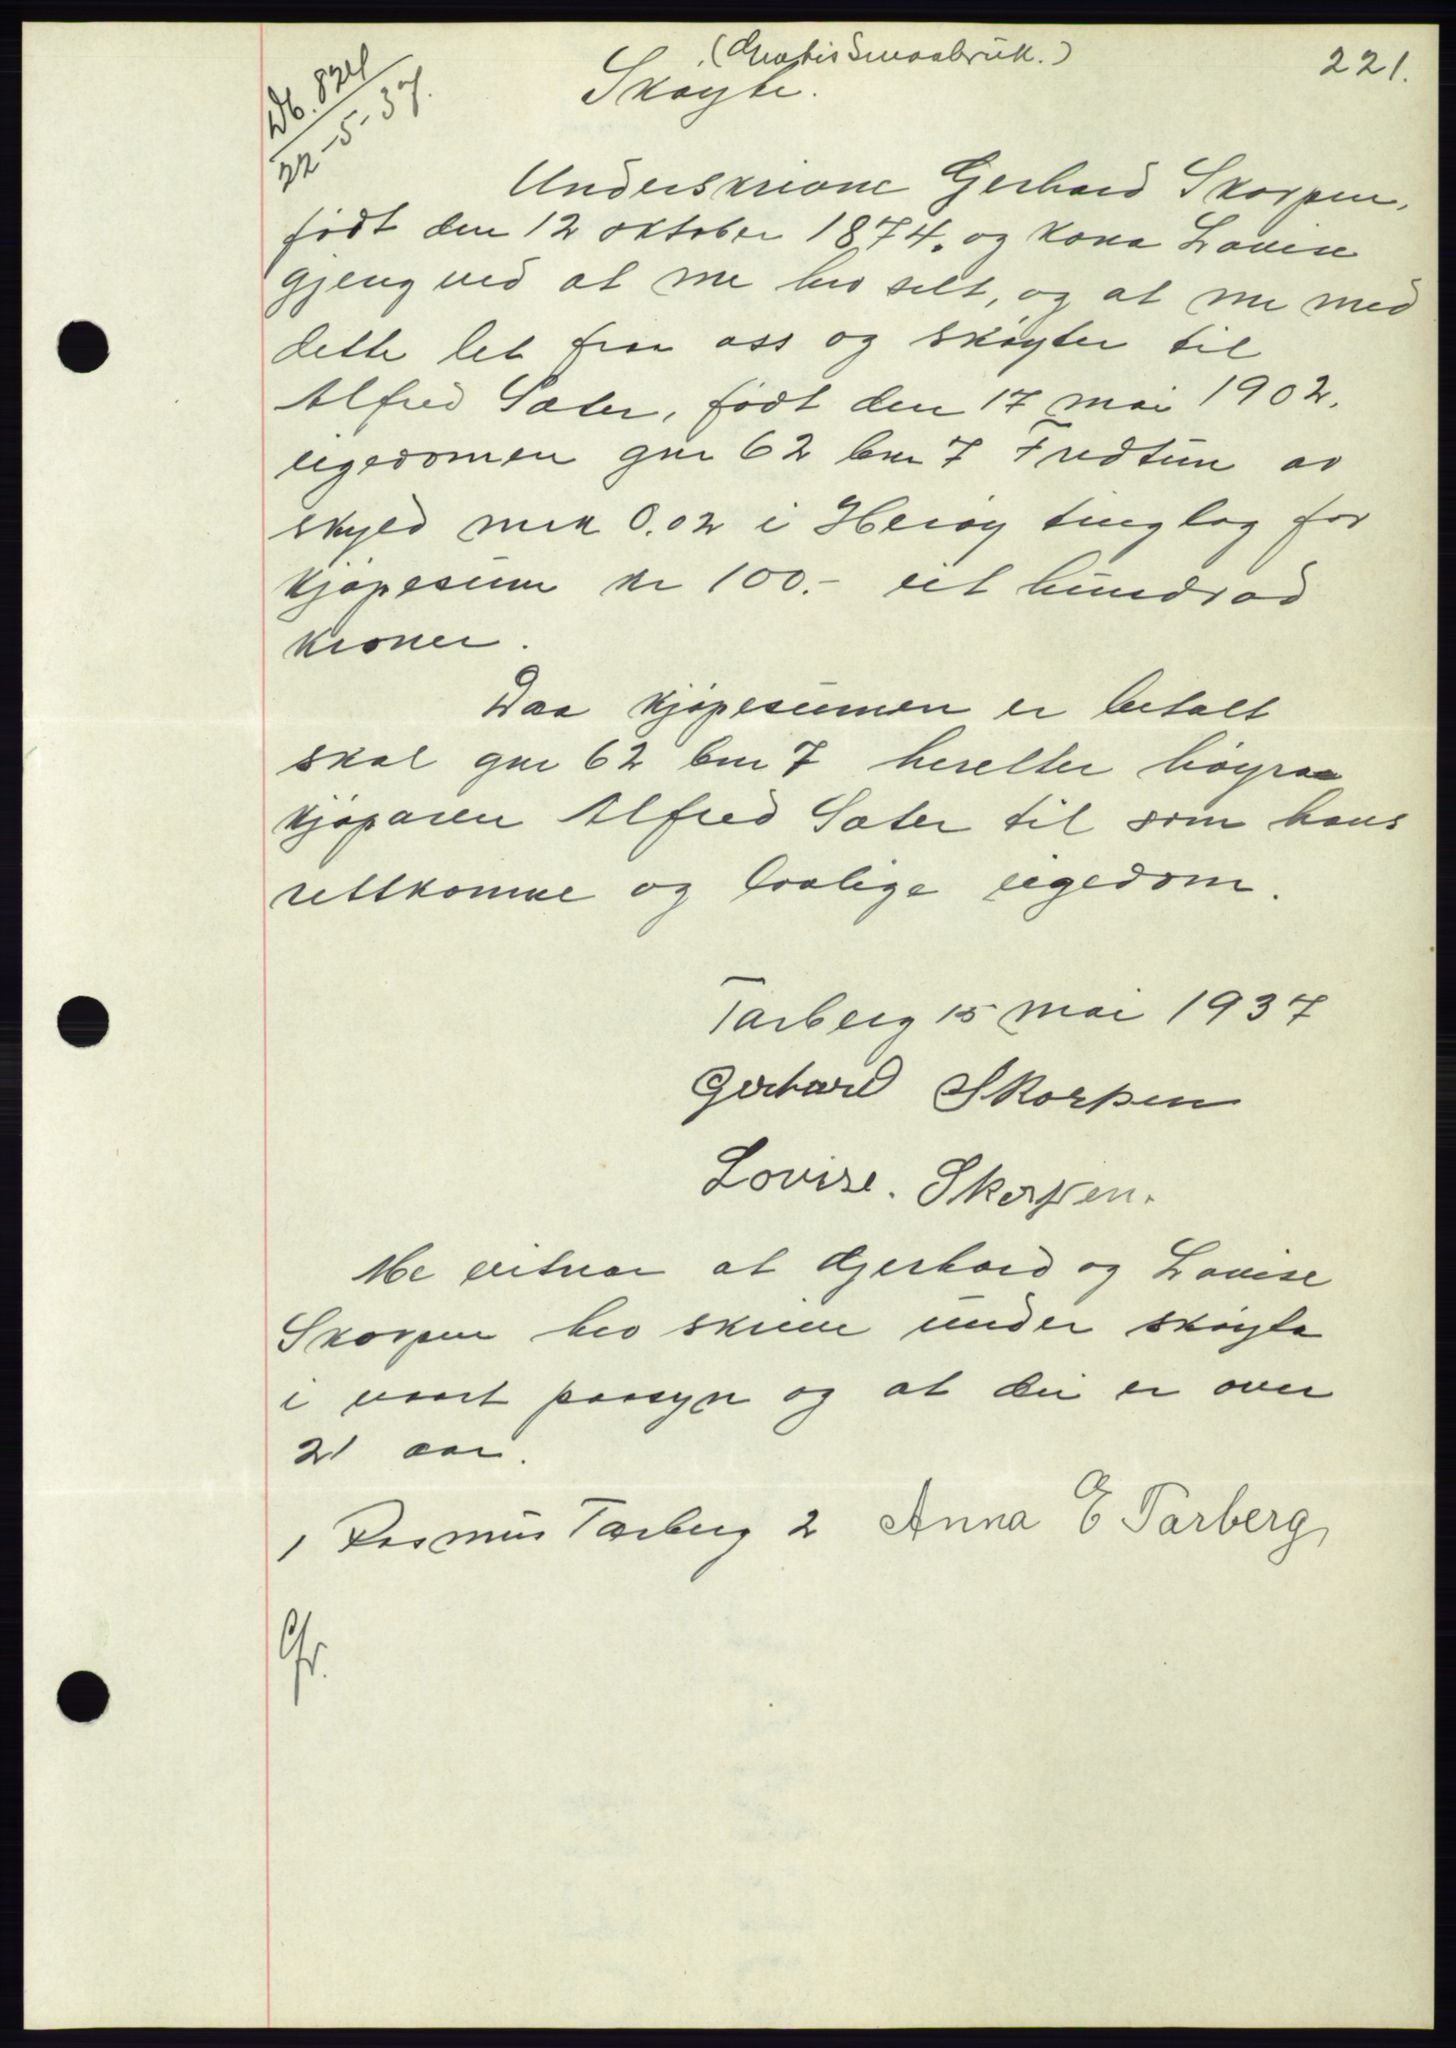 (Gratis Smaabruk.)
221.
Skøyte.
Db. 824
22-5-37.
Underskrivne Gerhard Skorpen,
født den 12 oktober 1874. og kona Lovise
gjeng ved at me hev selt, og at me med
dette let fraa oss og skøyter til
Alfred Sæter, født den 17 mai 1902.
eigedomen gnr 62 bnr 7 Fredtun av
skyld mrk 0.02 i Herøy tinglag for
kjøpesum kr 100.- eit hundrad
kroner.
Daa kjøpesumen er betalt
skal gnr 62 bnr 7 heretter høyra
kjøparen Alfred Sæter til som hans
rettkomne og lovlige eigedom.
Tarberg 15 mai 1937
Gerhard Skorpen
Lovise. Skorpen.
Me vitnar at Gjerhard og Lovise
Skorpen hev skrive under skøyta
i vaart paasyn og at dei er over
21 aar.
1 Rasmus Tarberg 2 Anna E Tarberg,